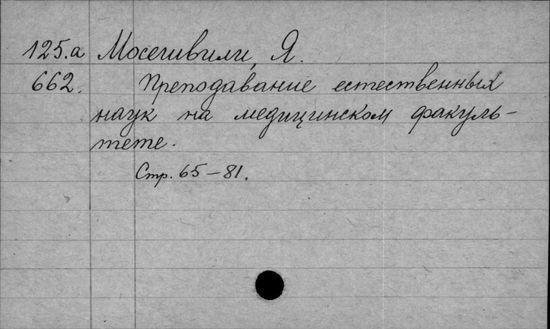 125.а Мосешвили, Я.
662. Преподавание естественных
наук на медицинском факуль-
тете.
Стр. 65-81.